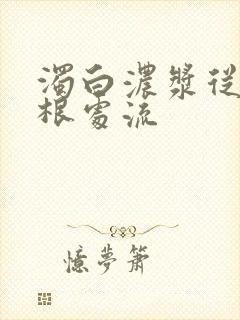 濁白濃漿從
根處流
憶夢簫